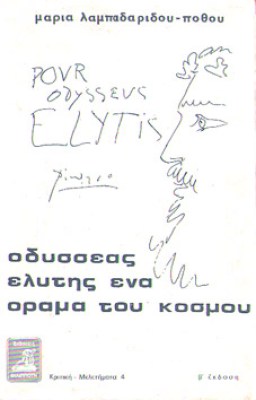 μαρια λαμπαδαριδου-ποθου
POUR
odysseus
ELYTIS
οδυσσεας
ελυτης ενα
οραμα του κοσμου
Κριτική - Μελετήματα 4
β΄ έκδοση